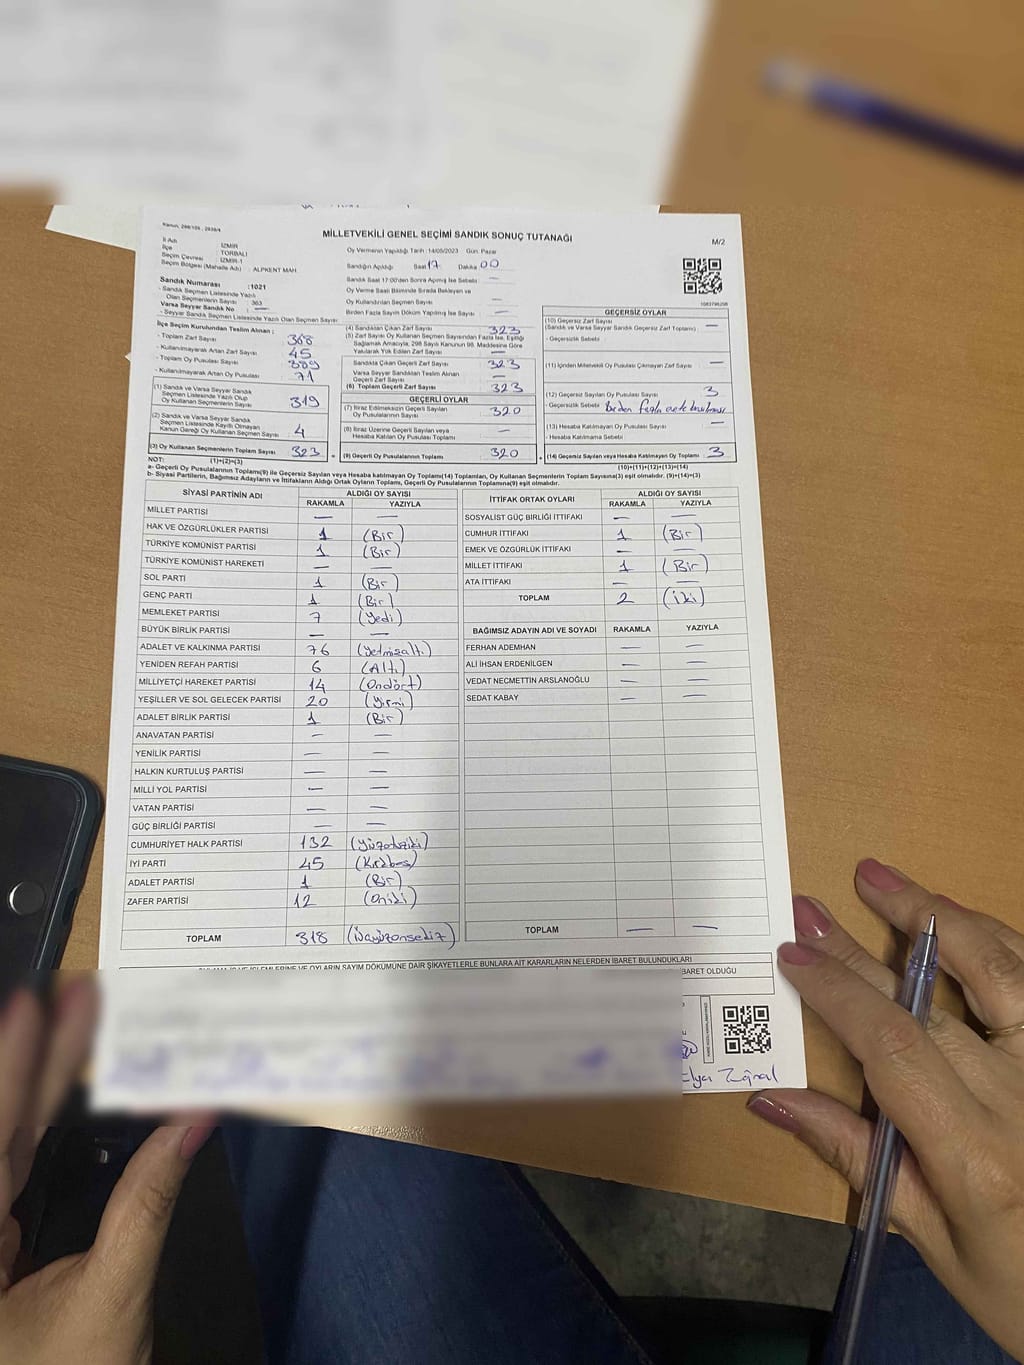 Kanun: 298/105 - 2839/4
MİLLETVEKİLİ GENEL SEÇİMİ SANDIK SONUÇ TUTANAĞI
M/2
İl Adı : İZMİR
İlçe : TORBALI
Seçim Çevresi : İZMİR-1
Seçim Bölgesi (Mahalle Adı) : ALPKENT MAH.
Oy Vermenin Yapıldığı Tarih :14/05/2023 Gün: Pazar
Sandığın Açıldığı Saat 17 Dakika 00
Sandık Saat 17:00'den Sonra Açılmış İse Sebebi : —
Oy Verme Saati Bitiminde Sırada Bekleyen ve
Oy Kullandırılan Seçmen Sayısı : —
Birden Fazla Sayım Döküm Yapılmış İse Sayısı : —
Sandık Numarası :1021
- Sandık Seçmen Listesinde Yazılı
Olan Seçmenlerin Sayısı : 363
Varsa Seyyar Sandık No : —
- Seyyar Sandık Seçmen Listesinde Yazılı Olan Seçmen Sayısı:
İlçe Seçim Kurulundan Teslim Alınan ;
- Toplam Zarf Sayısı : 368
- Kullanılmayarak Artan Zarf Sayısı : 45
- Toplam Oy Pusulası Sayısı : 389
- Kullanılmayarak Artan Oy Pusulası : 71
(1) Sandık ve Varsa Seyyar Sandık
Seçmen Listesinde Yazılı Olup
Oy Kullanan Seçmenlerin Sayısı 319
(2) Sandık ve Varsa Seyyar Sandık
Seçmen Listesinde Kayıtlı Olmayan
Kanun Gereği Oy Kullanan Seçmen Sayısı 4
(3) Oy Kullanan Seçmenlerin Toplam Sayısı 323
(1)+(2)=(3)
(4) Sandıktan Çıkan Zarf Sayısı : 323
(5) Zarf Sayısı Oy Kullanan Seçmen Sayısından Fazla İse, Eşitliği
Sağlamak Amacıyla, 298 Sayılı Kanunun 98. Maddesine Göre
Yakılarak Yok Edilen Zarf Sayısı : —
Sandıkta Çıkan Geçerli Zarf Sayısı : 323
Varsa Seyyar Sandıktan Teslim Alınan
Geçerli Zarf Sayısı : —
(6) Toplam Geçerli Zarf Sayısı : 323
GEÇERLİ OYLAR
(7) İtiraz Edilmeksizin Geçerli Sayılan
Oy Pusulalarının Sayısı : 320
(8) İtiraz Üzerine Geçerli Sayılan veya
Hesaba Katılan Oy Pusulası Toplamı : —
(9) Geçerli Oy Pusulalarının Toplamı : 320
1083798208
GEÇERSİZ OYLAR
(10) Geçersiz Zarf Sayısı
(Sandık ve Varsa Seyyar Sandık Geçersiz Zarf Toplamı) : —
- Geçersizlik Sebebi :
(11) İçinden Milletvekili Oy Pusulası Çıkmayan Zarf Sayısı : —
(12) Geçersiz Sayılan Oy Pusulası Sayısı : 3
- Geçersizlik Sebebi : Birden fazla evete basılması
(13) Hesaba Katılmayan Oy Pusulası Sayısı : —
- Hesaba Katılmama Sebebi :
(14) Geçersiz Sayılan veya Hesaba Katılmayan Oy Toplamı : 3
(10)+(11)+(12)+(13)=(14)
NOT:
a- Geçerli Oy Pusulalarının Toplamı(9) ile Geçersiz Sayılan veya Hesaba katılmayan Oy Toplamı(14) Toplamları, Oy Kullanan Seçmenlerin Toplam Sayısına(3) eşit olmalıdır. (9)+(14)=(3)
b- Siyasi Partilerin, Bağımsız Adayların ve İttifakların Aldığı Ortak Oyların Toplamı, Geçerli Oy Pusulalarının Toplamına(9) eşit olmalıdır.
SİYASİ PARTİNİN ADI ALDIĞI OY SAYISI
RAKAMLA YAZIYLA
MİLLET PARTİSİ — —
HAK VE ÖZGÜRLÜKLER PARTİSİ 1 (Bir)
TÜRKİYE KOMÜNİST PARTİSİ 1 (Bir)
TÜRKİYE KOMÜNİST HAREKETİ — —
SOL PARTİ 1 (Bir)
GENÇ PARTİ 1 (Bir)
MEMLEKET PARTİSİ 7 (Yedi)
BÜYÜK BİRLİK PARTİSİ — —
ADALET VE KALKINMA PARTİSİ 76 (Yetmişaltı)
YENİDEN REFAH PARTİSİ 6 (Altı)
MİLLİYETÇİ HAREKET PARTİSİ 14 (Ondört)
YEŞİLLER VE SOL GELECEK PARTİSİ 20 (Yirmi)
ADALET BİRLİK PARTİSİ 1 (Bir)
ANAVATAN PARTİSİ — —
YENİLİK PARTİSİ — —
HALKIN KURTULUŞ PARTİSİ — —
MİLLİ YOL PARTİSİ — —
VATAN PARTİSİ — —
GÜÇ BİRLİĞİ PARTİSİ — —
CUMHURİYET HALK PARTİSİ 132 (Yüzotuziki)
İYİ PARTİ 45 (Kırkbeş)
ADALET PARTİSİ 1 (Bir)
ZAFER PARTİSİ 12 (Oniki)
TOPLAM 318 (Üçyüzonsekiz)
İTTİFAK ORTAK OYLARI ALDIĞI OY SAYISI
RAKAMLA YAZIYLA
SOSYALİST GÜÇ BİRLİĞİ İTTİFAKI — —
CUMHUR İTTİFAKI 1 (Bir)
EMEK VE ÖZGÜRLÜK İTTİFAKI — —
MİLLET İTTİFAKI 1 (Bir)
ATA İTTİFAKI — —
TOPLAM 2 (İki)
BAĞIMSIZ ADAYIN ADI VE SOYADI RAKAMLA YAZIYLA
FERHAN ADEMHAN — —
ALİ İHSAN ERDENİLGEN — —
VEDAT NECMETTİN ARSLANOĞLU — —
SEDAT KABAY — —
TOPLAM — —
OYLARIN SAYIM DÖKÜMÜNE DAİR ŞİKAYETLERLE BUNLARA AİT KARARLARIN NELERDEN İBARET BULUNDUKLARI
BARET OLDUĞU